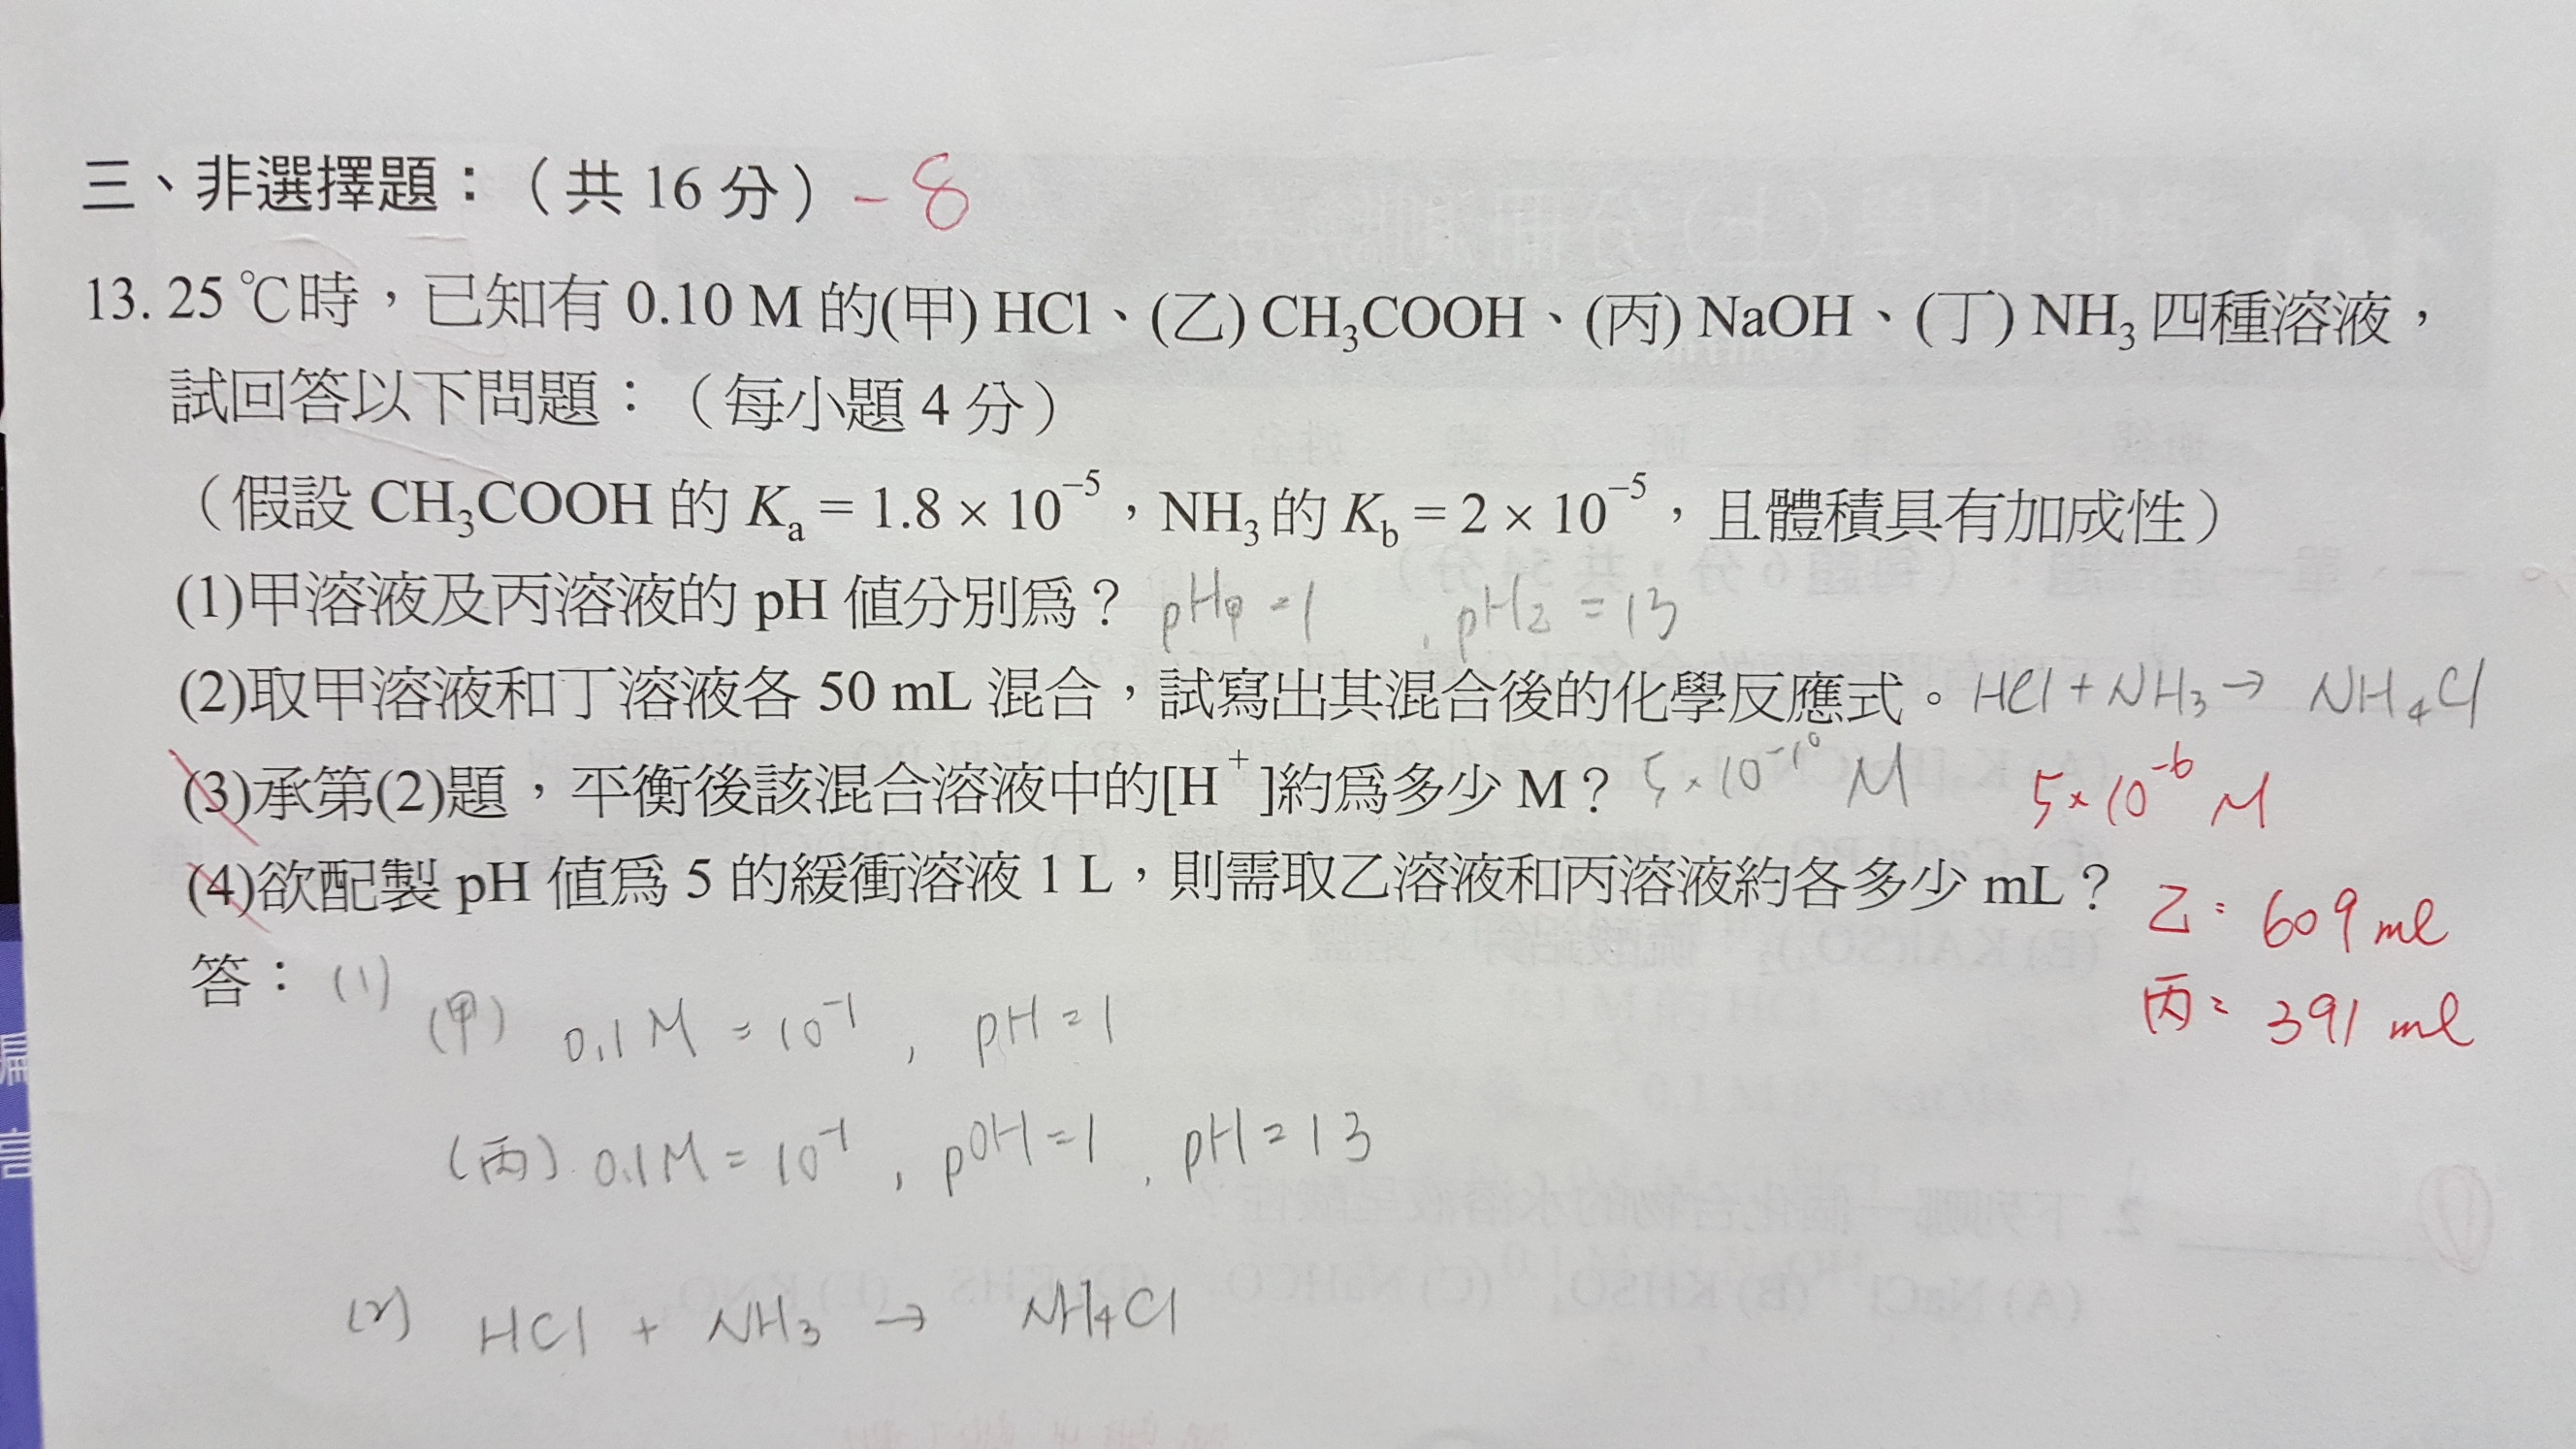 三、非選擇題：（共 16 分） -8
13. 25 ℃時，已知有 0.10 M 的(甲) HCl、(乙) CH₃COOH、(丙) NaOH、(丁) NH₃ 四種溶液，
試回答以下問題：（每小題 4 分）
（假設 CH₃COOH 的 Kₐ = 1.8 × 10⁻⁵，NH₃的 K_b = 2 × 10⁻⁵，且體積具有加成性）
(1)甲溶液及丙溶液的 pH 值分別為？ pH甲 = 1 , pH = 13
(2)取甲溶液和丁溶液各 50 mL 混合，試寫出其混合後的化學反應式。 HCl + NH₃ → NH₄Cl
(3)承第(2)題，平衡後該混合溶液中的[H⁺]約為多少 M？ 5×10⁻¹⁰ M 5×10⁻⁶ M
(4)欲配製 pH 值為 5 的緩衝溶液 1 L，則需取乙溶液和丙溶液約各多少 mL？ 乙: 609 ml
丙: 391 ml
答： (1)
(甲) 0.1M = 10⁻¹ , pH = 1
(丙) 0.1M = 10⁻¹ , pOH = 1 , pH = 13
(2) HCl + NH₃ → NH₄Cl